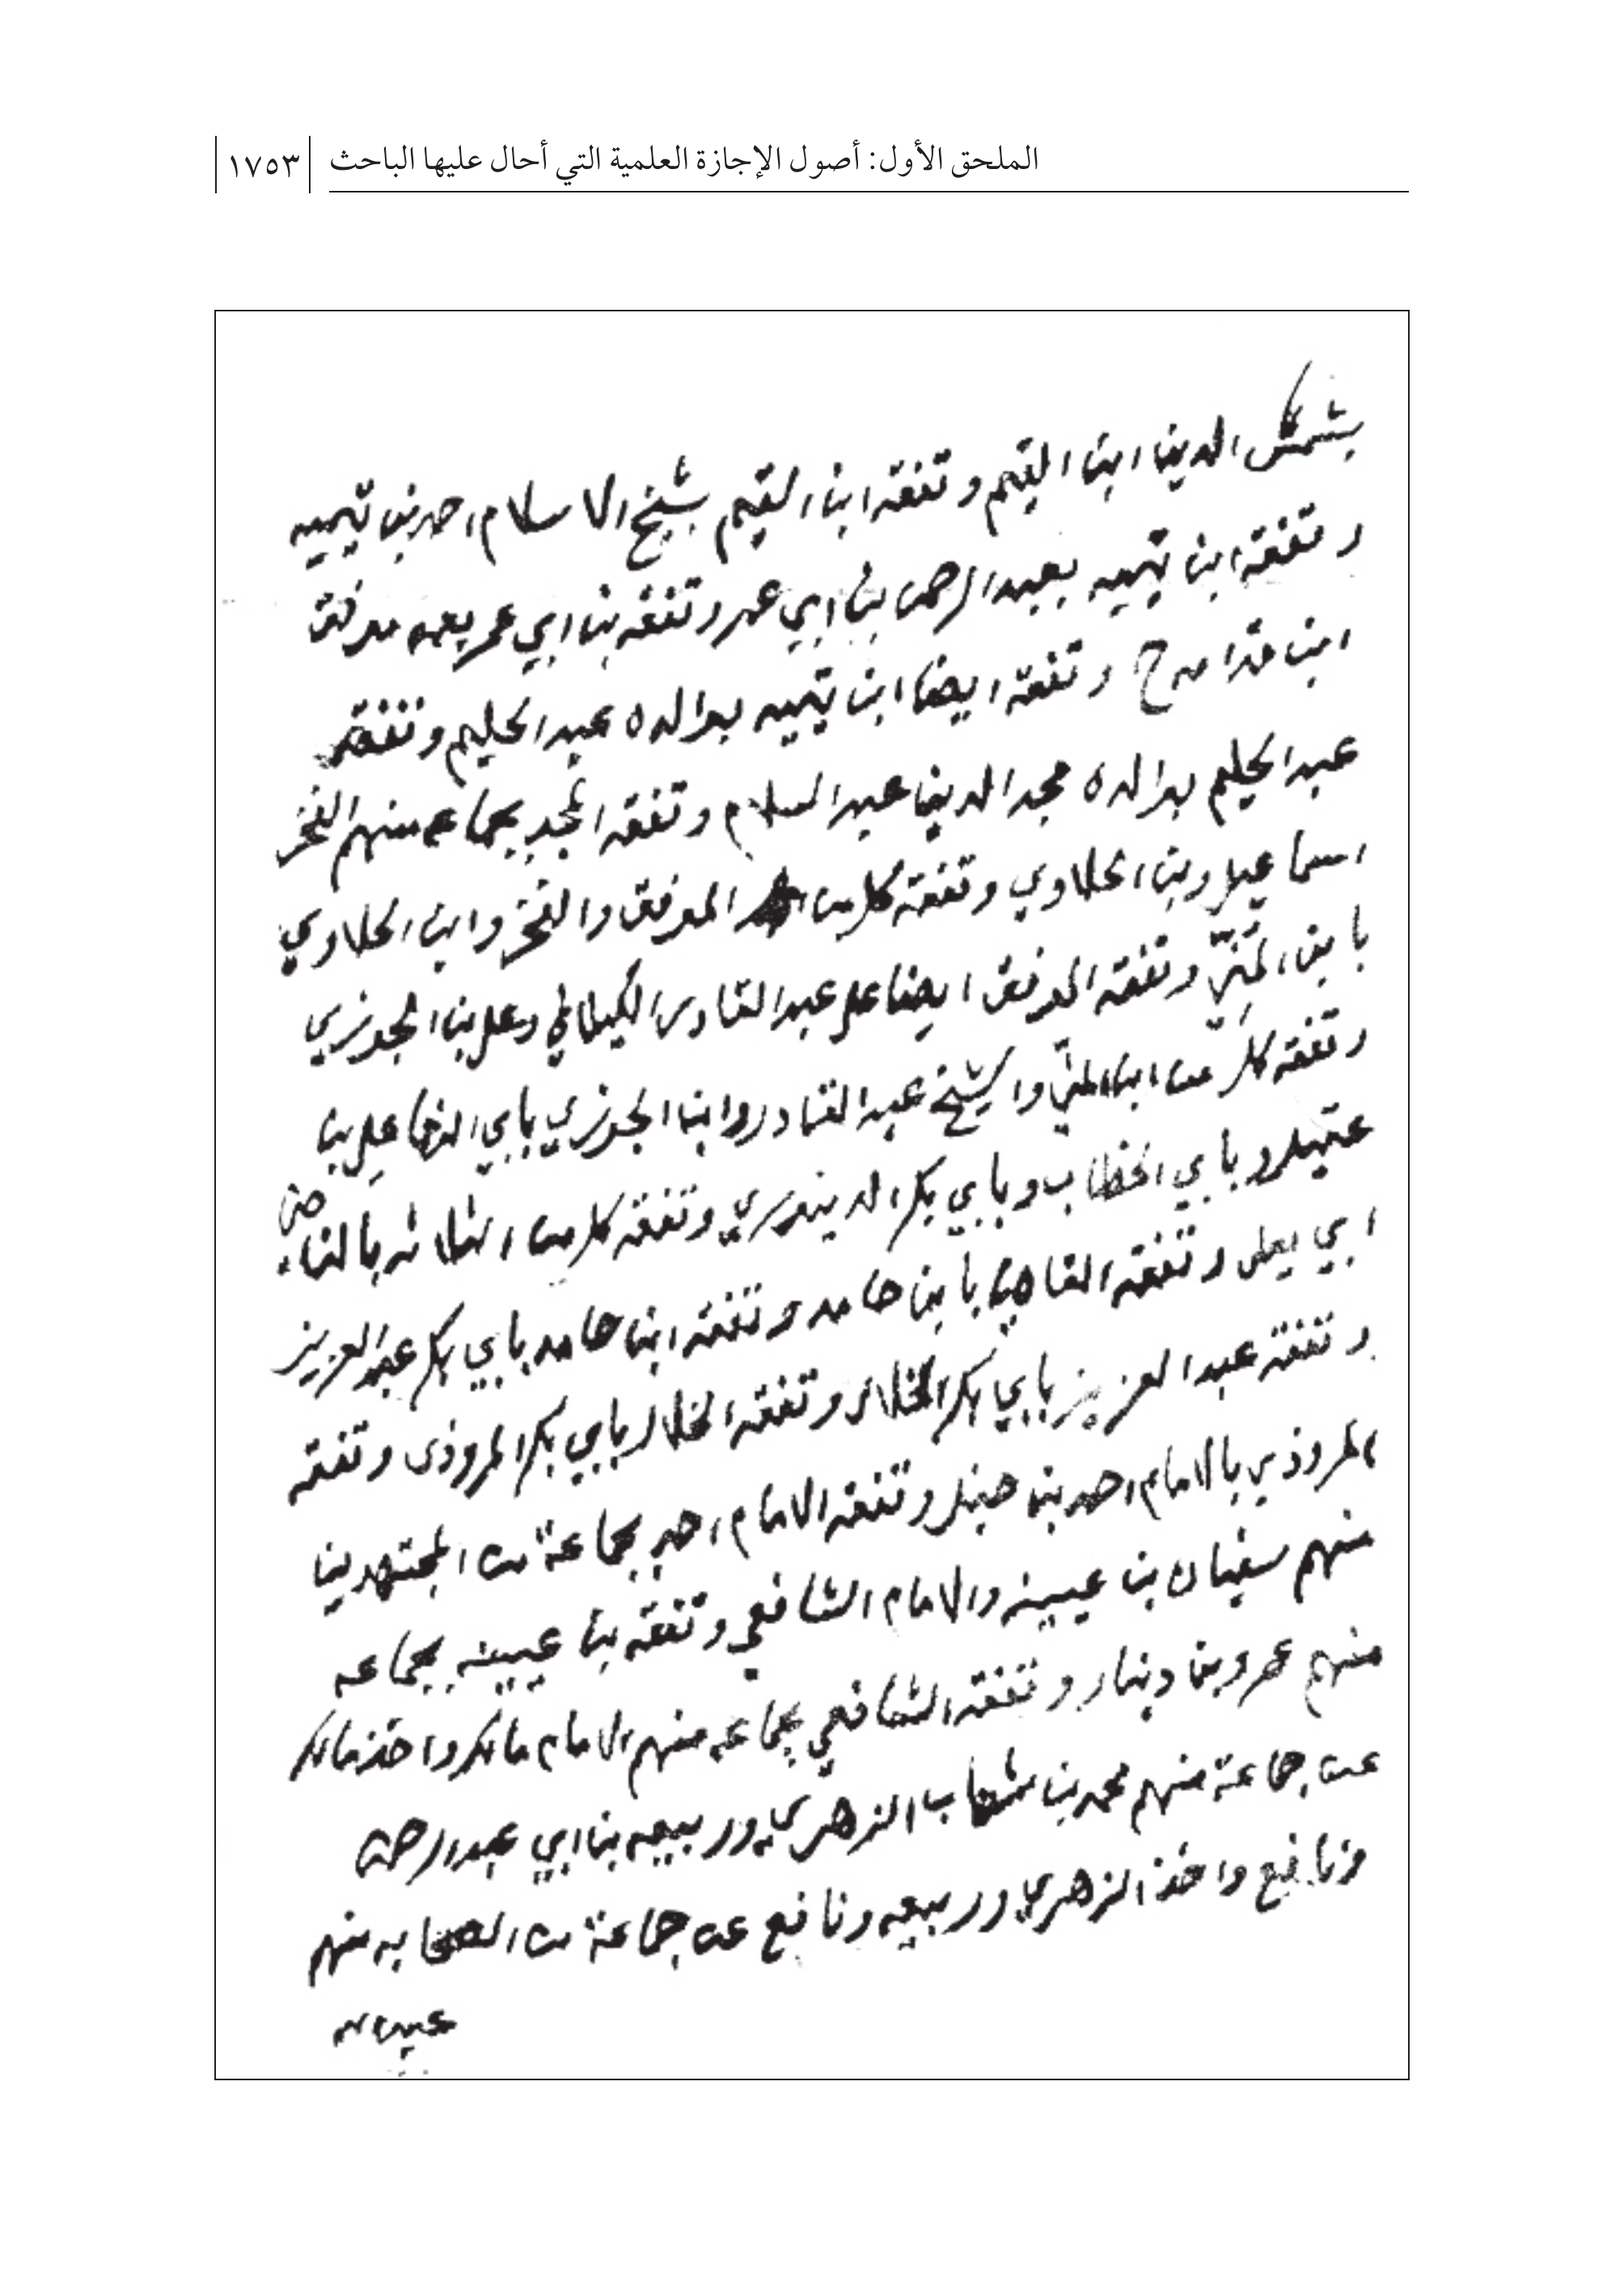 الملحق الأول: أصول الإجازة العلمية التي أحال عليها الباحث ١٧٥٣
بشمس الدين ابن القيم وتفقه ابن القيم بشيخ الاسلام احمد بن تيميه
وتفقه ابن تيميه بعبد الرحمن بن ابي عمر وتفقه بن ابي عمر بعمه موفق
ابن قدامه ح وتفقه ايضا ابن تيميه بوالده عبد الحليم وتفقه
عبد الحليم بوالده مجد الدين عبد السلام وتفقه المجد بجماعه منهم الفخر
اسماعيل وبن الحلاوي وتفقه كل من الموفق والفخر وابن الحلاوي
بابن المَنِّي وتفقه الموفق ايضا على عبد القادر الكيلاني وعلى بن الجوزي
وتفقه كل من ابن المني والشيخ عبد القادر وابن الجوزي بابي الوفا علي بن
عقيل وبابي الخطاب وبابي بكر الدينوري وتفقه كل من الثلاثه بالقاضي
ابي يعلى وتفقه القاضي بابن حامد وتفقه ابن حامد بابي بكر عبد العزيز
وتفقه عبد العزيز بابي بكر الخلال وتفقه الخلال بابي بكر المروذى وتفقه
المروذي بالامام احمد بن حنبل وتفقه الامام احمد بجماعة من المجتهدين
منهم سفيان بن عيينه والامام الشافعي وتفقه بن عيينه بجماعه
منهم عمرو بن دينار وتفقه الشافعي بجماعه منهم الامام مالك واخذ مالك
عن جماعة منهم محمد بن شهاب الزهري وربيعه بن ابي عبد الرحمن
ونافع واخذ الزهري وربيعه ونافع عن جماعة من الصحابه منهم